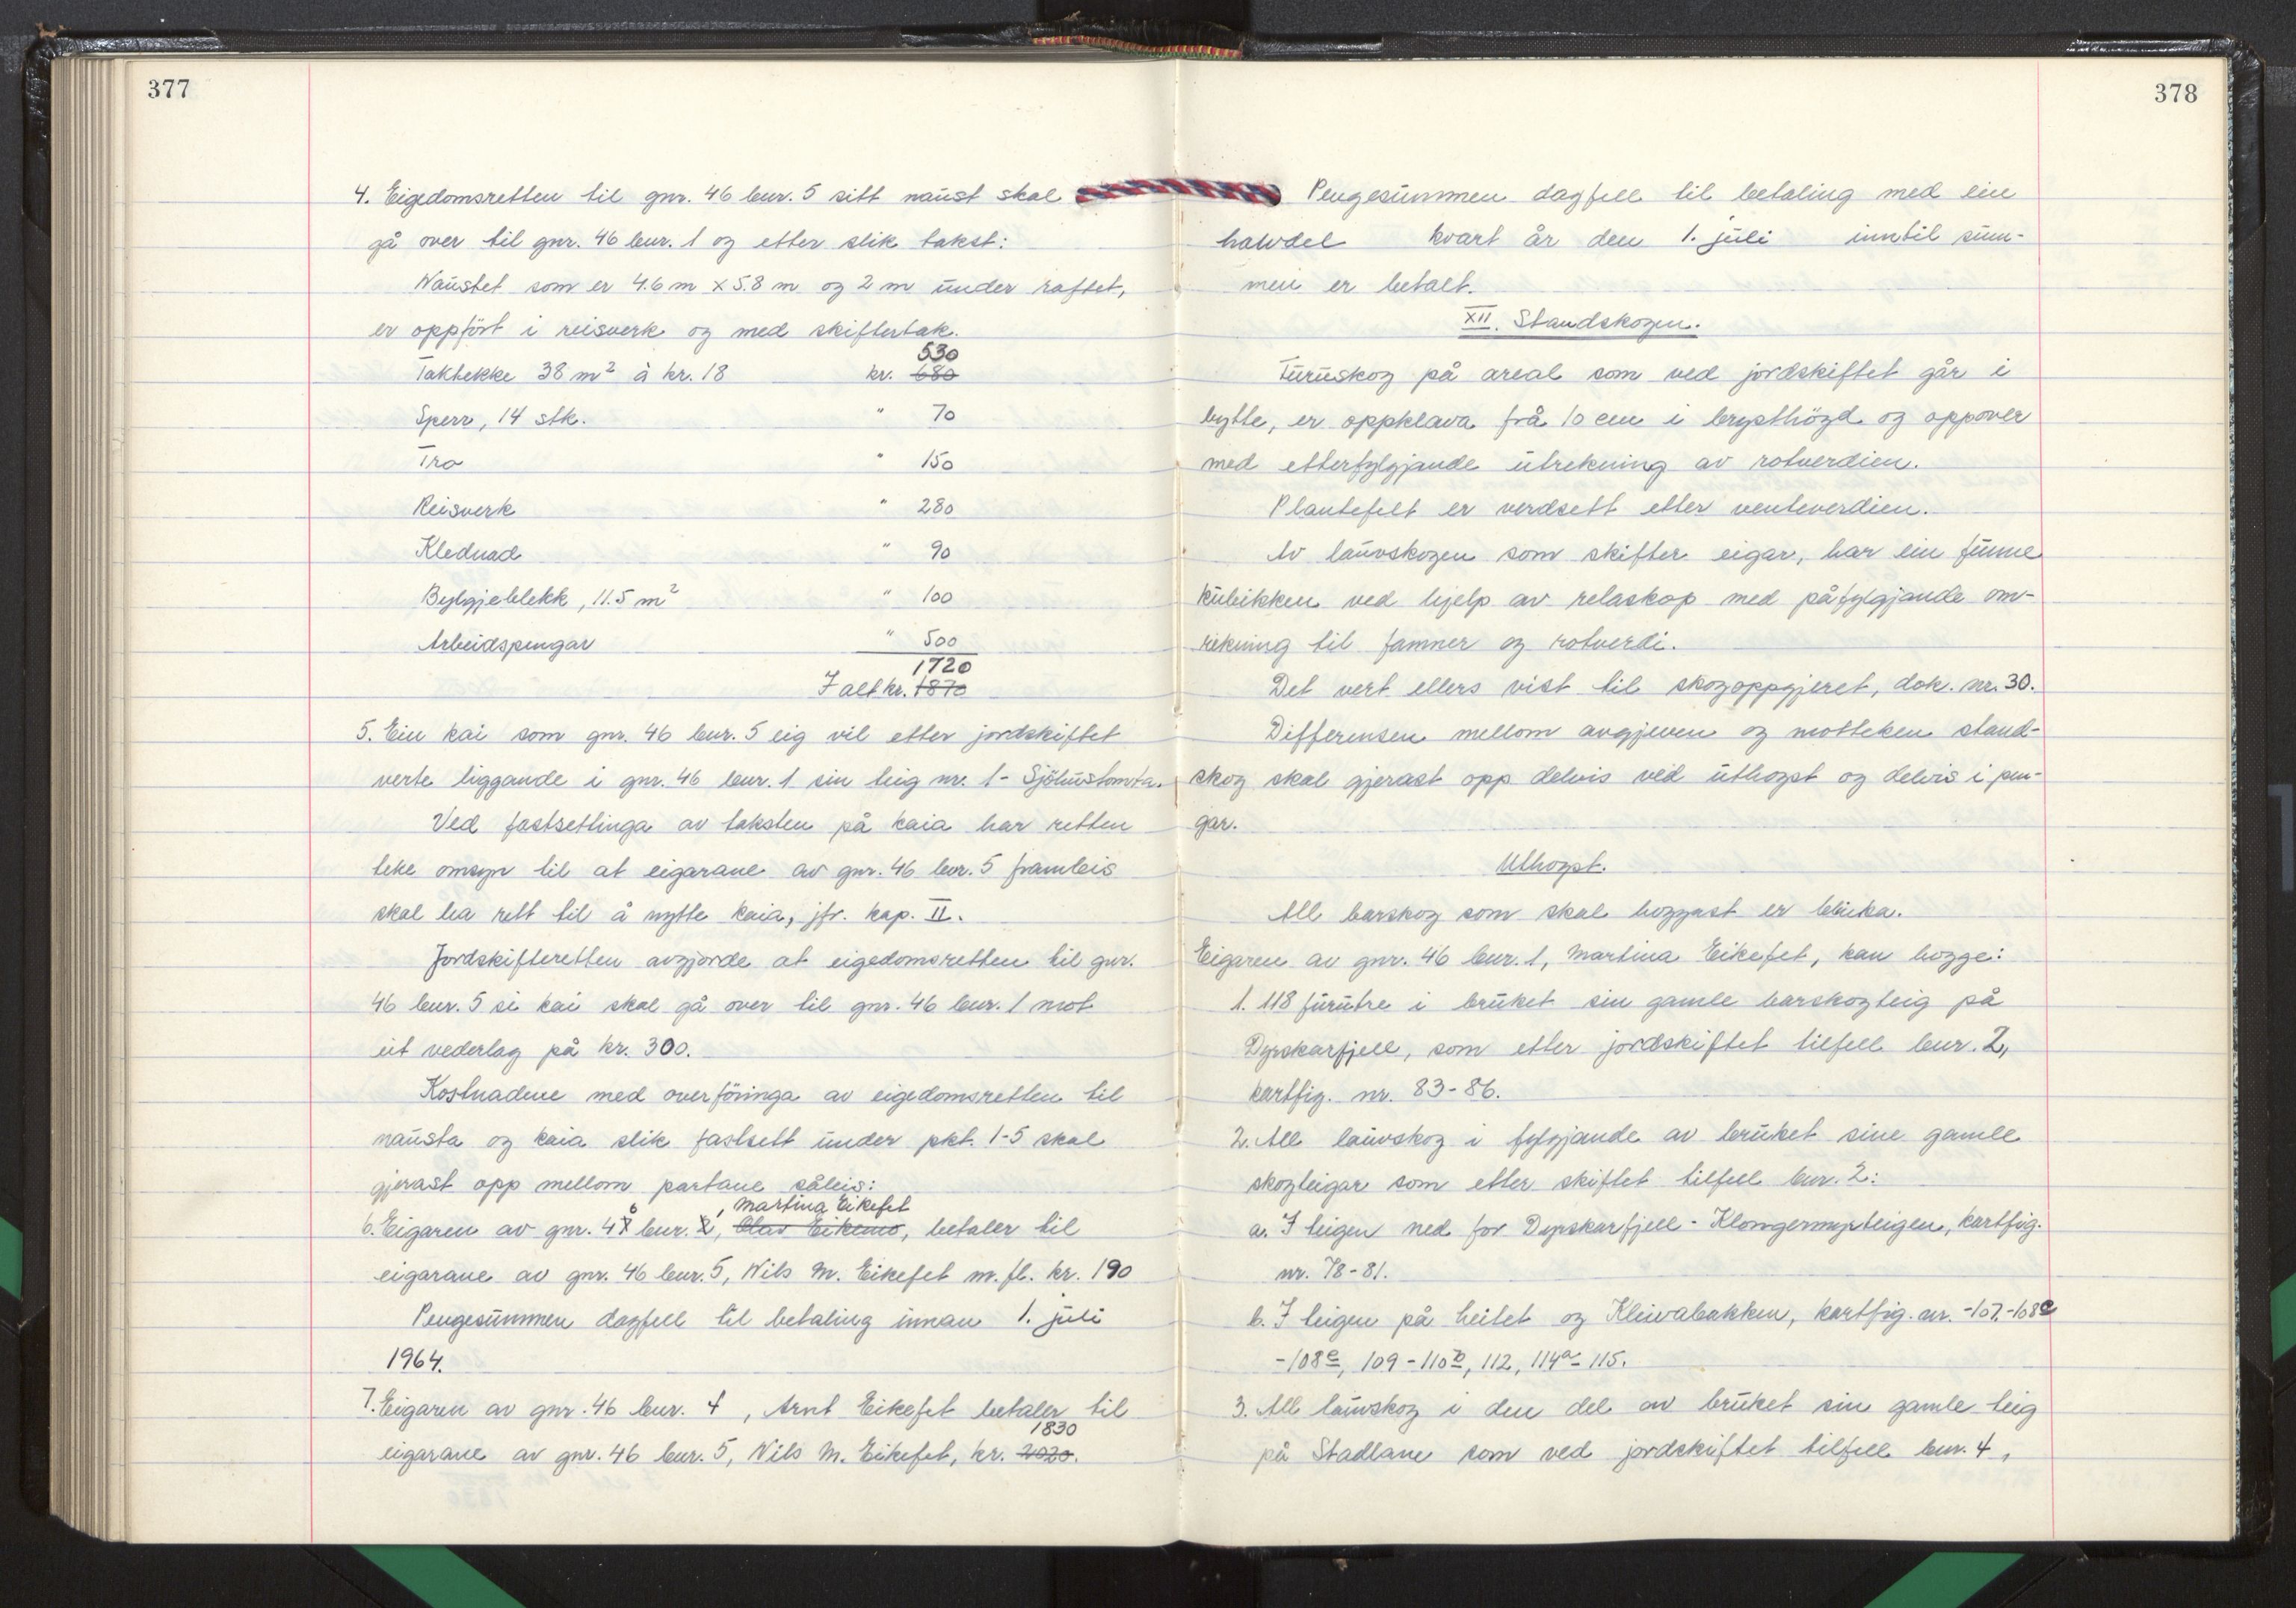 377
4. Eigedomsretten til gnr. 46 bnr. 5 sitt naust skal
gå over til gnr. 46 bnr. 1 og etter slik takst:
Naustet som er 4.6 m x 5.8 m og 2 m under raftet,
er oppført i reisverk og med skiftertak.
530
Taktekke 38 m² à kr. 18 kr. 680
Sperr, 14 stk. " 70
Tro " 150
Reisverk " 280
Klednad " 90
Bylgjeblekk, 11.5 m² " 100
Arbeidspengar " 500
1720
I alt kr. 1870
5. Ein kai som gnr. 46 bnr. 5 eig vil etter jordskiftet
verte liggande i gnr. 46 bnr. 1 sin teig nr. 1 - Sjöhustomta.
Ved fastsetlinga av taksten på kaia har retten
teke omsyn til at eigarane av gnr. 46 bnr. 5 framleis
skal ha rett til å nytte kaia, jfr. kap. II.
Jordskifteretten avgjorde at eigedomsretten til gnr.
46 bnr. 5 si kai skal gå over til gnr. 46 bnr. 1 mot
eit vederlag på kr. 300.
Kostnadene med overföringa av eigedomsretten til
nausta og kaia slik fastsett under pkt. 1-5 skal
gjerast opp mellom partane såleis:
6 , Martina Eikefet
6. Eigaren av gnr. 4 bnr. 2, Olav Eikemo, betaler til
eigarane av gnr. 46 bnr. 5, Nils M. Eikefet m. fl. kr. 190
Pengesummen dagfell til betaling innan 1. juli
1964.
7. Eigaren av gnr. 46 bnr. 4, Arnt Eikefet betaler til
1830
eigarane av gnr. 46 bnr. 5, Nils M. Eikefet, kr. 2020.
378
Pengesummen dagfell til betaling med ein
halvdel kvart år den 1. juli inntil sum-
men er betalt.
XII. Standskogen.
Furuskog på areal som ved jordskiftet går i
bytte, er oppklava frå 10 cm i brysthögd og oppover
med etterfylgjande utrekning av rotverdien.
Plantefelt er verdsett etter venteverdien.
Av lauvskogen som skifter eigar, har ein funne
kubikken ved hjelp av relaskop med påfylgjande om-
rekning til famner og rotverdi.
Det vert ellers vist til skogoppgjeret, dok. nr. 30.
Differensen mellom avgjeven og motteken stand-
skog skal gjerast opp delvis ved uthogst og delvis i pen-
gar.
Uthogst.
All barskog som skal hoggast er blinka.
Eigaren av gnr. 46 bnr. 1, Martina Eikefet, kan hogge:
1. 118 furutre i bruket sin gamle barskogteig på
Dyrskarfjell, som etter jordskiftet tilfell bnr. 2,
kartfig. nr. 83-86.
2. All lauvskog i fylgjande av bruket sine gamle
skogteigar som etter skiftet tilfell bnr. 2:
a. I teigen ned for Dyrskarfjell - Klongermyrteigen, kartfig.
nr. 78-81.
b. I teigen på heitet og Kleivabakken, kartfig. nr. -107,-108c
-108e, 109-110b, 112, 114a-115.
3. All lauvskog i den del av bruket sin gamle teig
på Stadlane som ved jordskiftet tilfell bnr. 4,